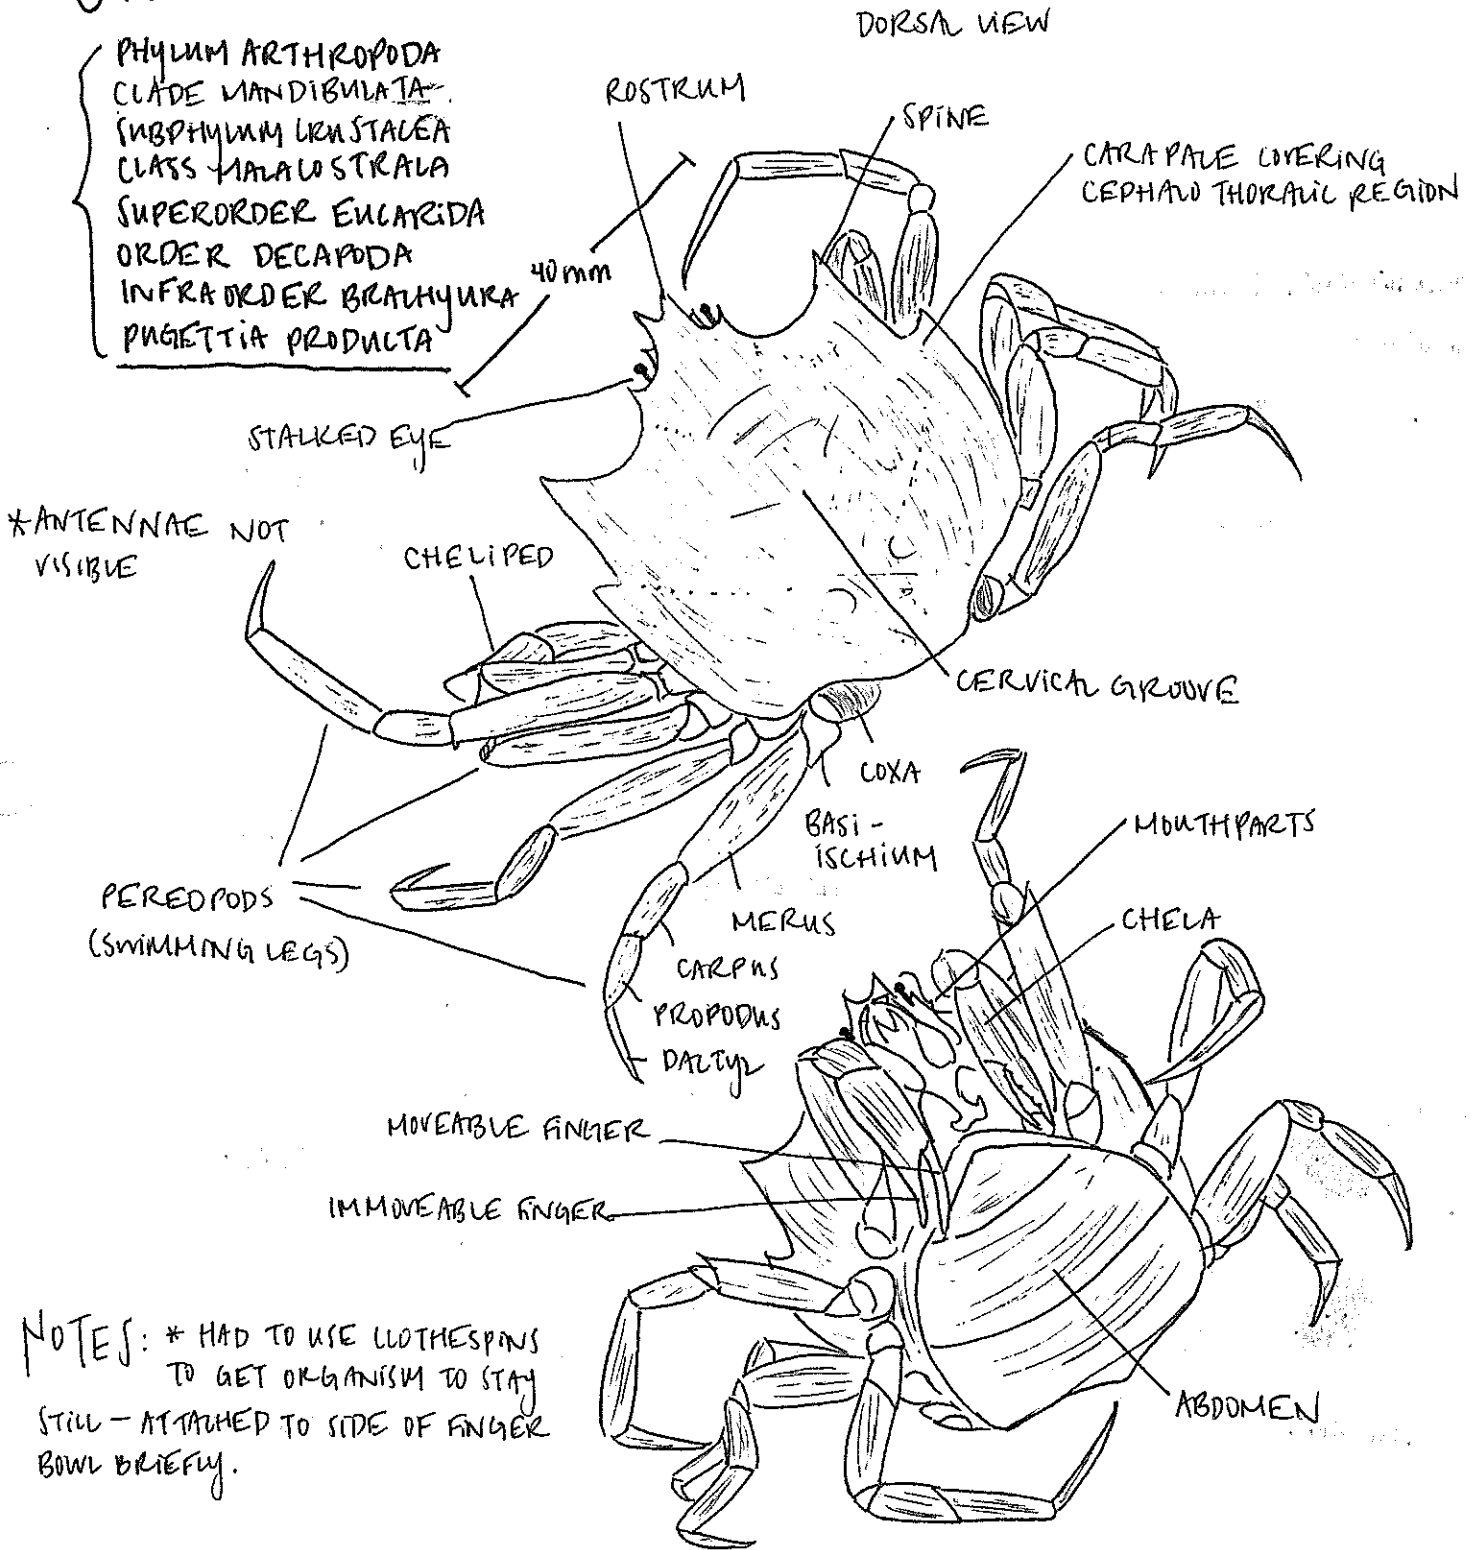 PHYLUM ARTHROPODA
CLADE MANDIBULATA
SUBPHYLUM CRUSTACEA
CLASS MALACOSTRACA
SUPERORDER EUCARIDA
ORDER DECAPODA
INFRAORDER BRACHYURA
PUGETTIA PRODUCTA
DORSAL VIEW
ROSTRUM
SPINE
CARAPACE COVERING
CEPHALOTHORACIC REGION
40mm
STALKED EYE
*ANTENNAE NOT
VISIBLE
CHELIPED
CERVICAL GROOVE
COXA
BASI-
ISCHIUM
MERUS
CARPUS
PROPODUS
DACTYL
PEREOPODS
(SWIMMING LEGS)
MOUTHPARTS
CHELA
MOVEABLE FINGER
IMMOVEABLE FINGER
ABDOMEN
NOTES: * HAD TO USE CLOTHESPINS
TO GET ORGANISM TO STAY
STILL - ATTACHED TO SIDE OF FINGER
BOWL BRIEFLY.